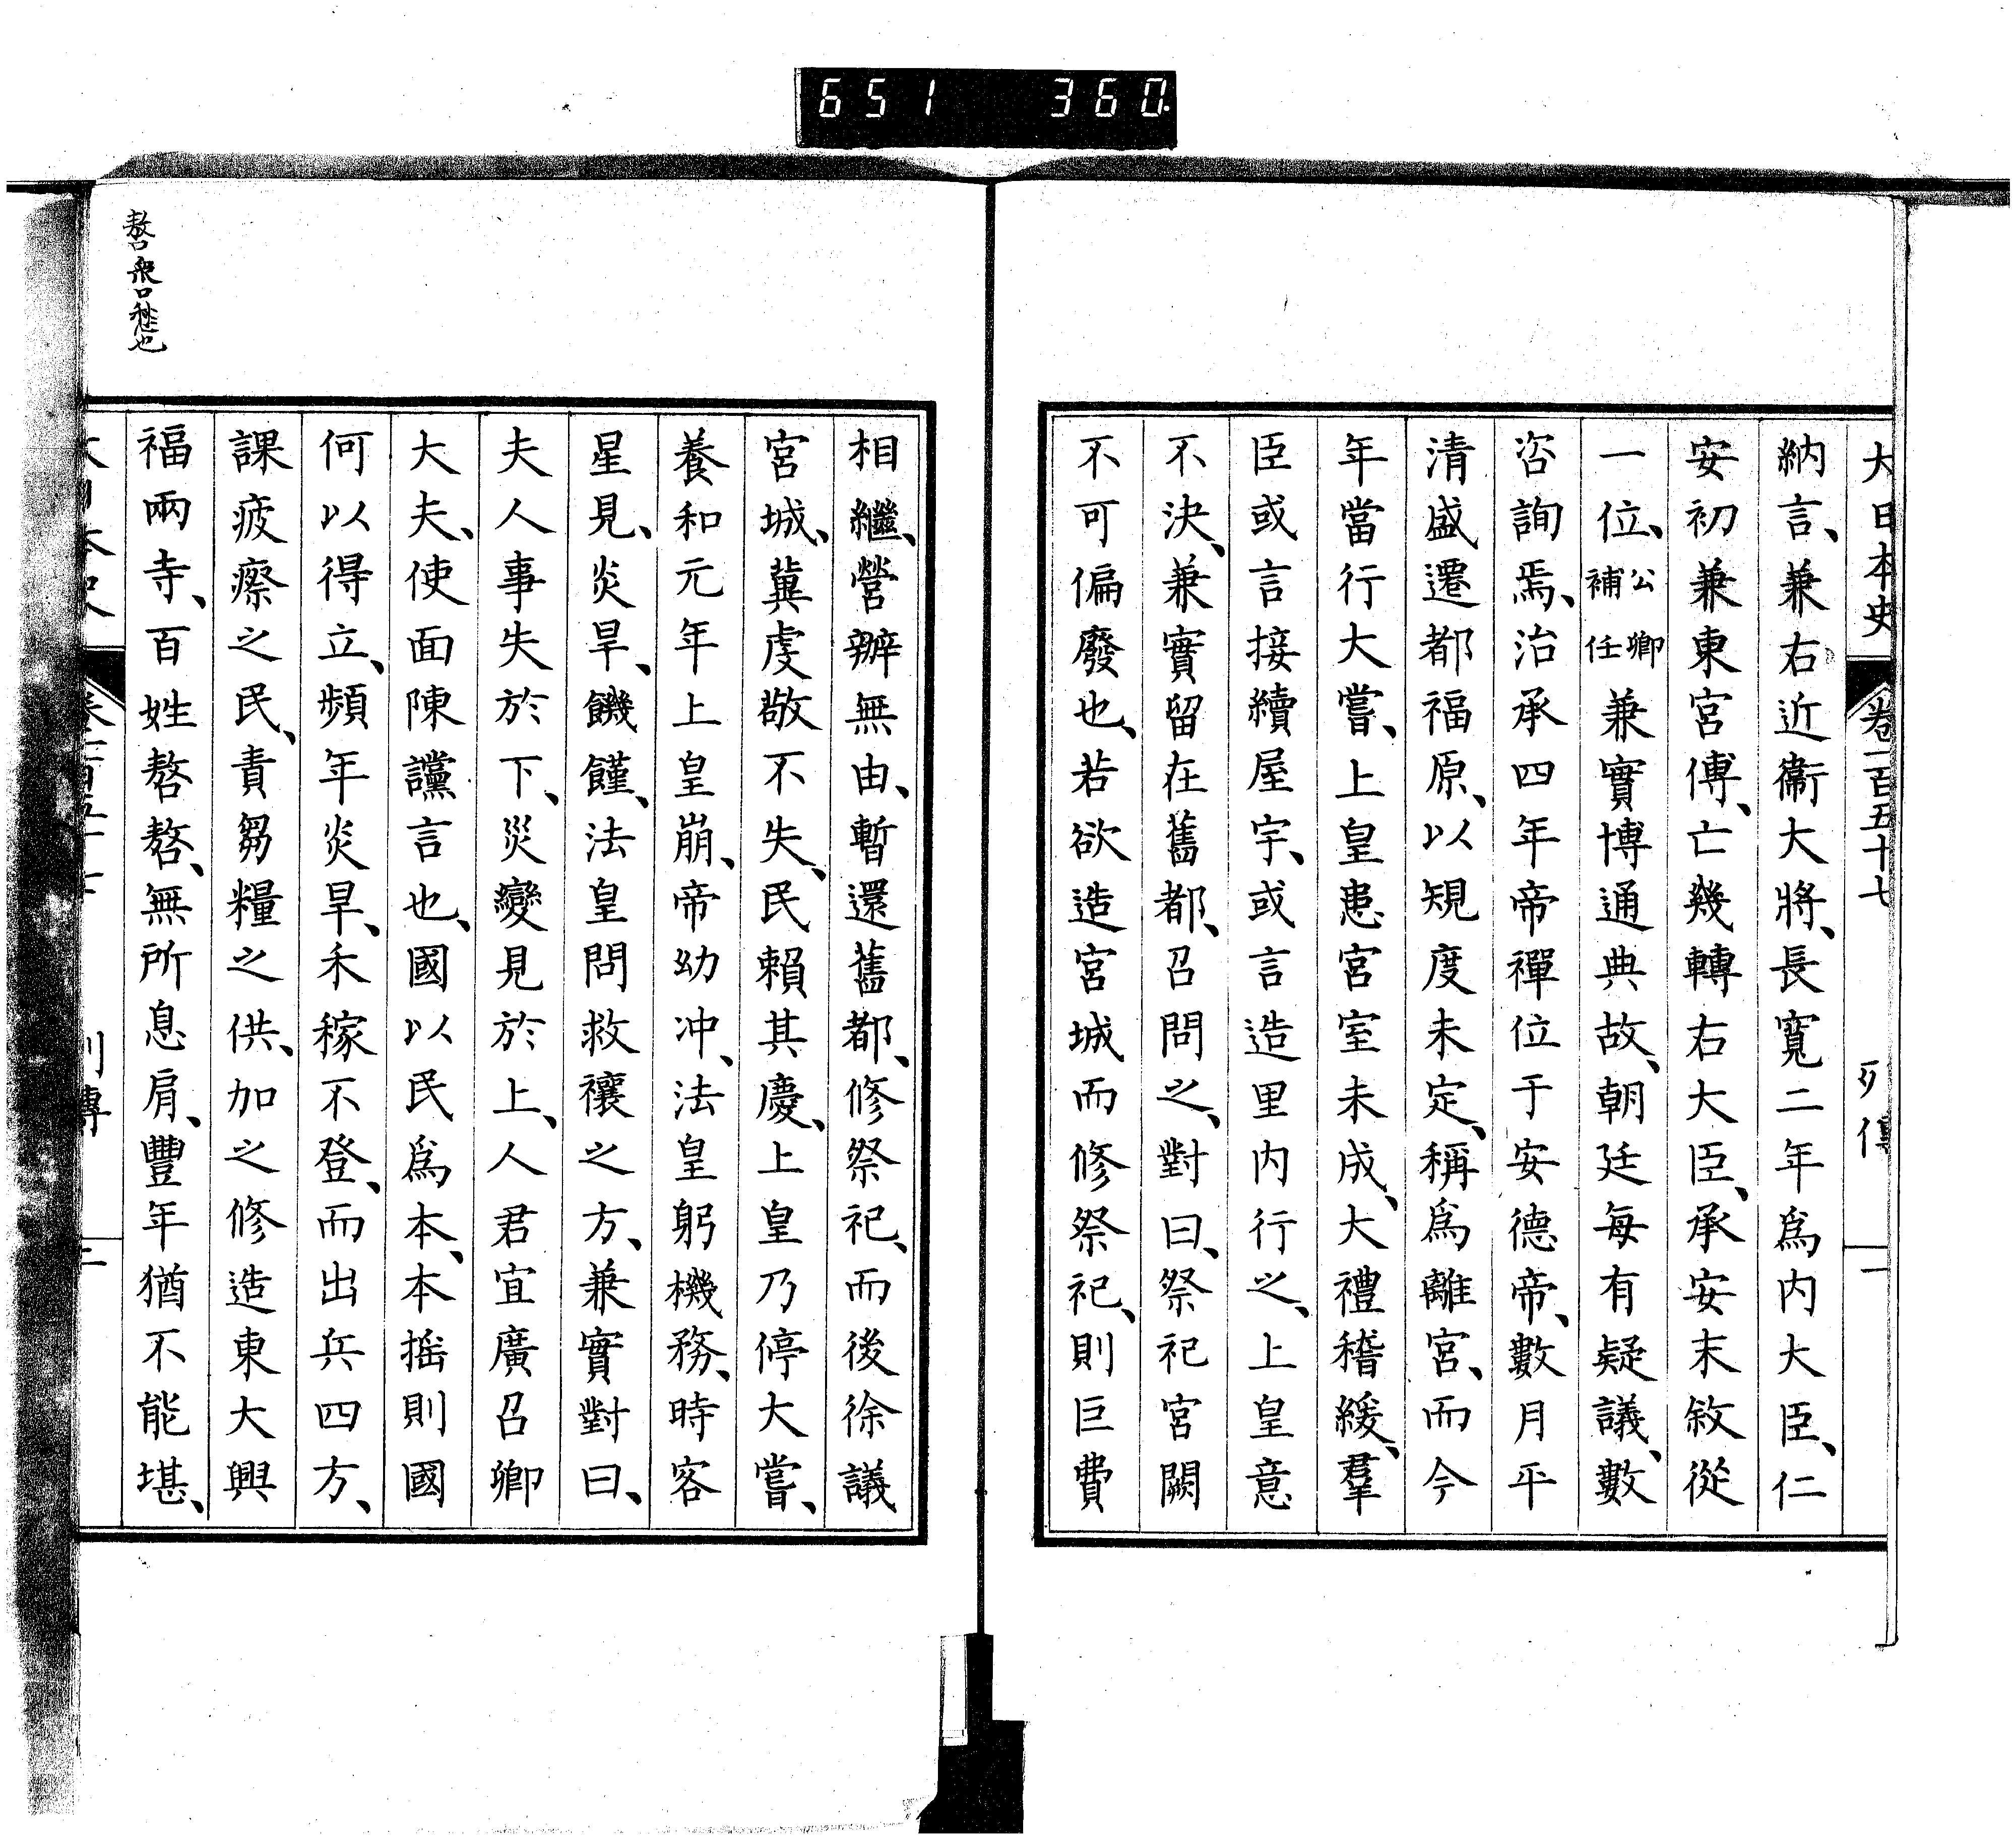 651 360
大日本史 卷一百五十七 列傳 一
納言、兼右近衞大將、長寬二年爲内大臣、仁
安初兼東宮傅、亡幾轉右大臣、承安末敘從
一位、公卿補任兼實博通典故、朝廷每有疑議、數
咨詢焉、治承四年帝禪位于安德帝、數月平
清盛遷都福原、以規度未定、稱爲離宮、而今
年當行大嘗、上皇患宮室未成、大禮稽緩、羣
臣或言接續屋宇、或言造里内行之、上皇意
不決、兼實留在舊都、召問之、對曰、祭祀宮闕
不可偏廢也、若欲造宮城而修祭祀、則巨費
相繼、營辦無由、暫還舊都、修祭祀、而後徐議
宮城、冀虔敬不失、民賴其慶、上皇乃停大嘗、
養和元年上皇崩、帝幼冲、法皇躬機務、時客
星見、炎旱、饑饉、法皇問救禳之方、兼實對曰、
夫人事失於下、災變見於上、人君宜廣召卿
大夫、使面陳讜言也、國以民爲本、本搖則國
何以得立、頻年炎旱、禾稼不登、而出兵四方、
課疲瘵之民、責芻糧之供、加之修造東大興
福兩寺、百姓嗸嗸、無所息肩、豐年猶不能堪、
嗸衆口愁也
大日本史 卷一百五十七 列傳 二